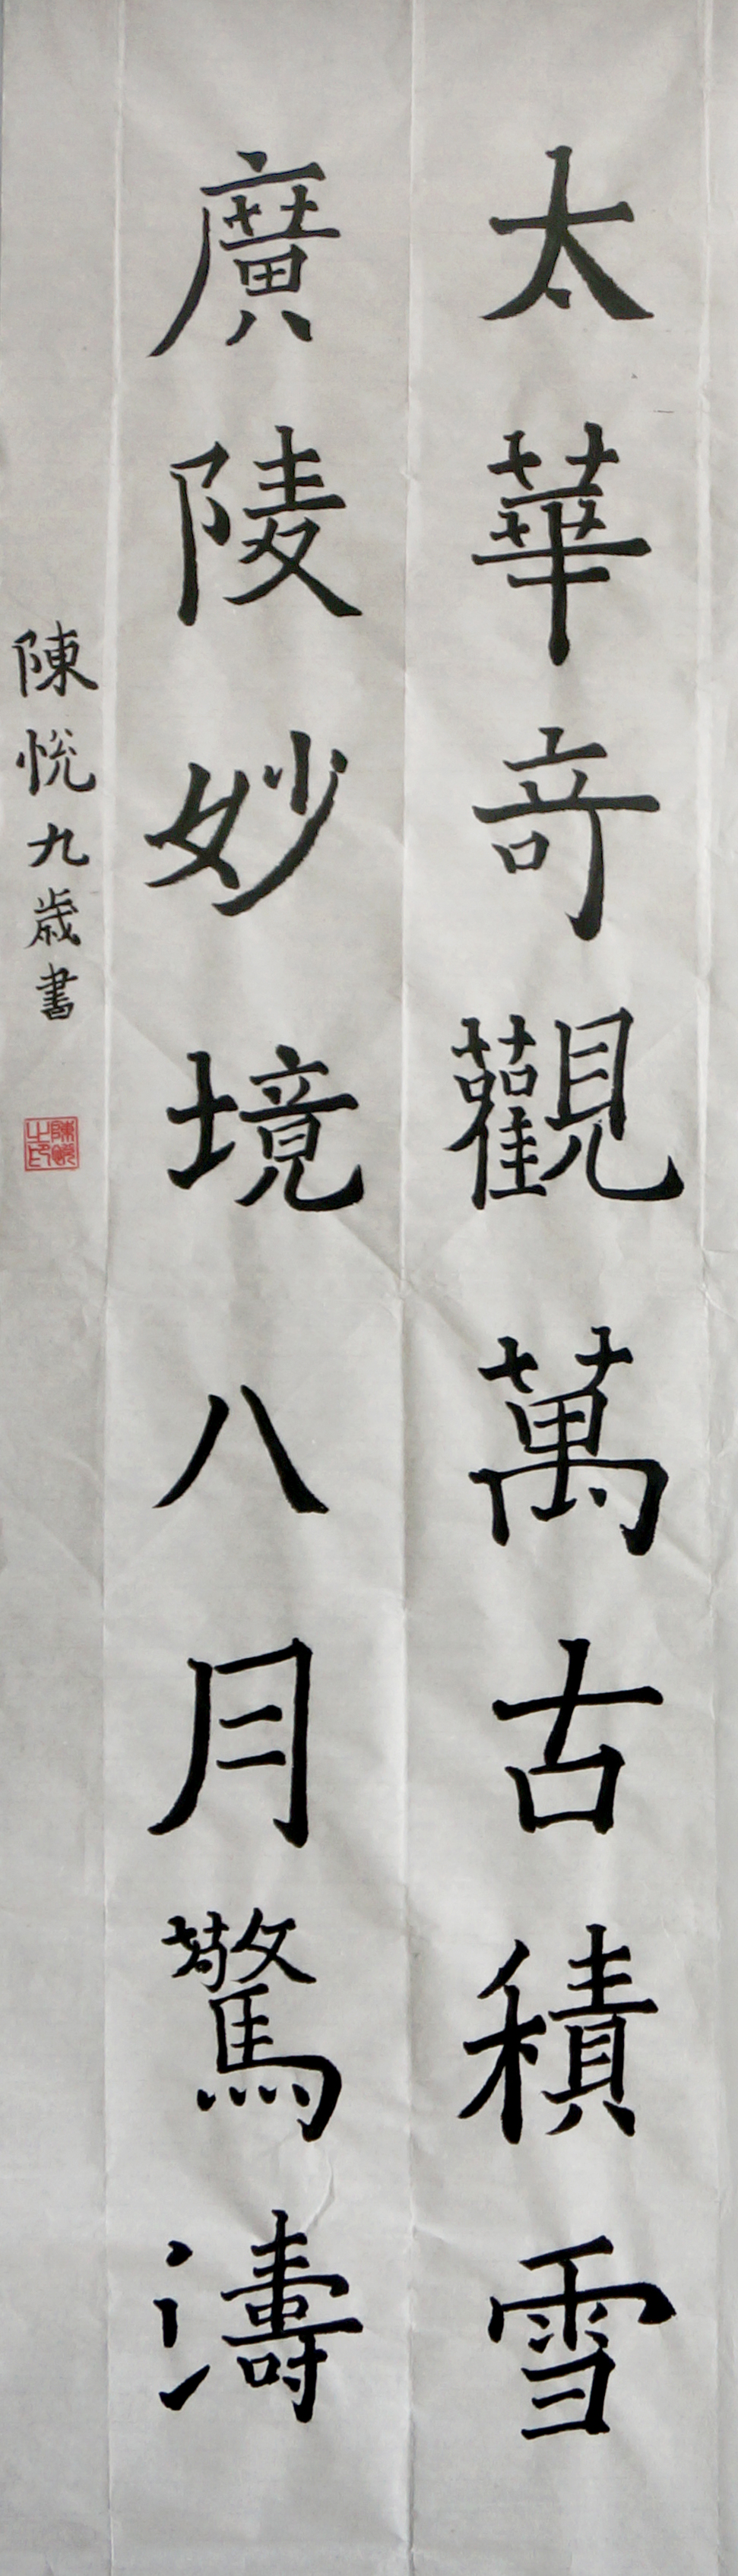 太華奇觀萬古積雪
廣陵妙境八月驚濤
陳悦九歲書
陳悦之印